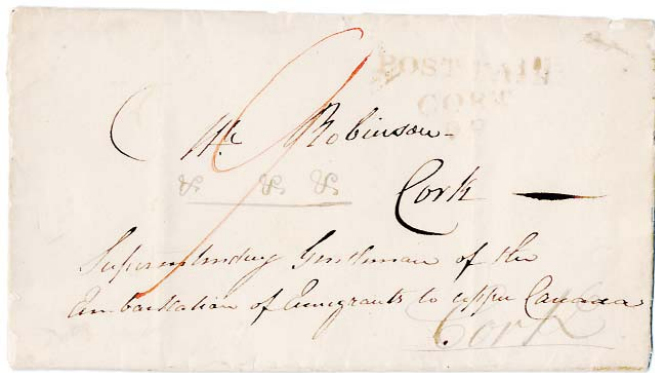 POST PAID
CORK
Mr Robinson
Cork
Superintending Gentleman of the
Embarkation of Emigrants to upper Canada
Cork